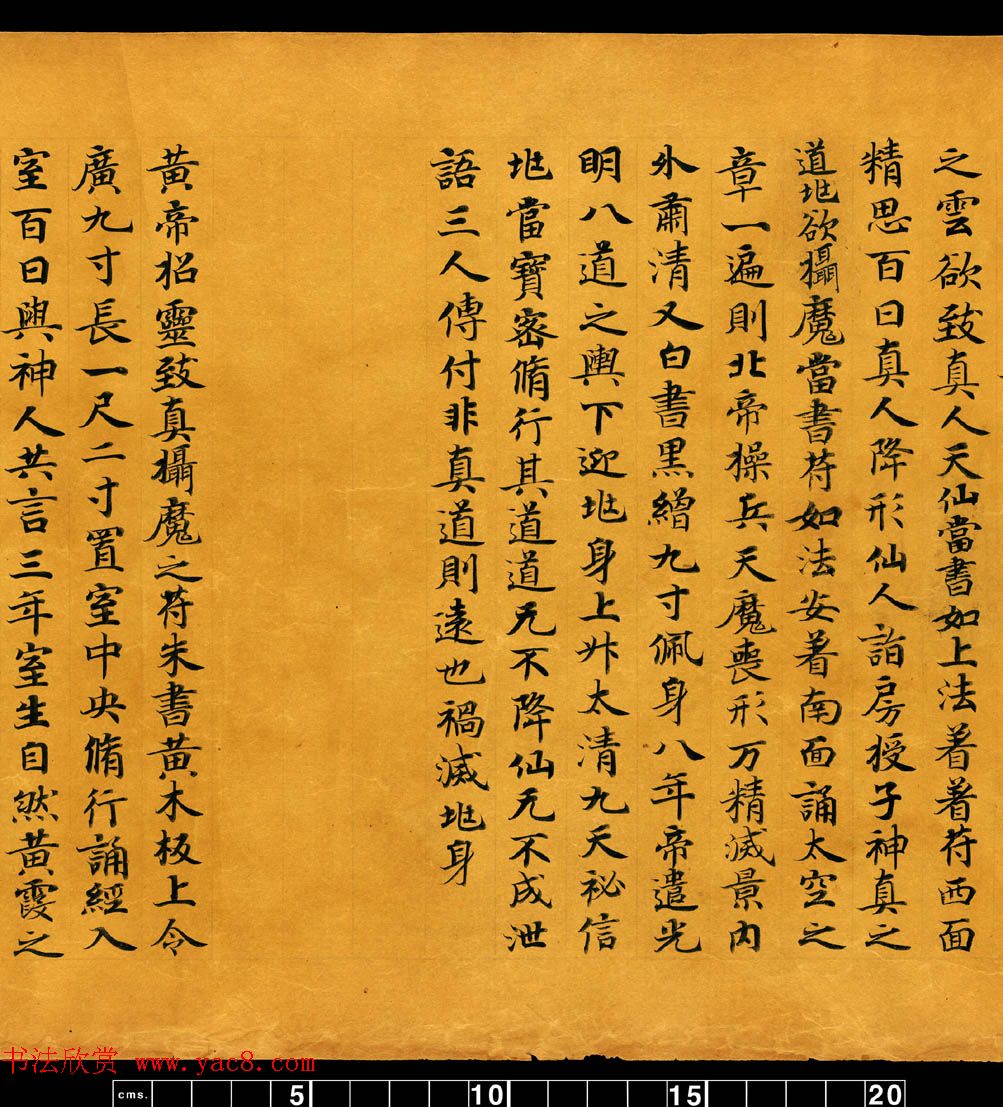 之雲欲致真人天仙當書如上法着着苻西面
精思百日真人降形仙人詣房授子神真之
道兆欲攝魔當書苻如法安着南面誦太空之
章一遍則北帝操兵天魔喪形万精滅景内
外肅清又白書黑繒九寸佩身八年帝遣光
明八道之輿下迎兆身上升太清九天祕信
兆當寶密脩行其道道无不降仙无不成泄
語三人傳付非真道則遠也禍滅兆身
黃帝招靈致真攝魔之苻朱書黃木板上令
廣九寸長一尺二寸置室中央脩行誦經入
室百日與神人共言三年室生自然黃霞之
书法欣赏 www.yac8.com
cms. 5 10 15 20